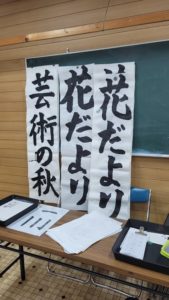 花だより
花だより
芸術の秋